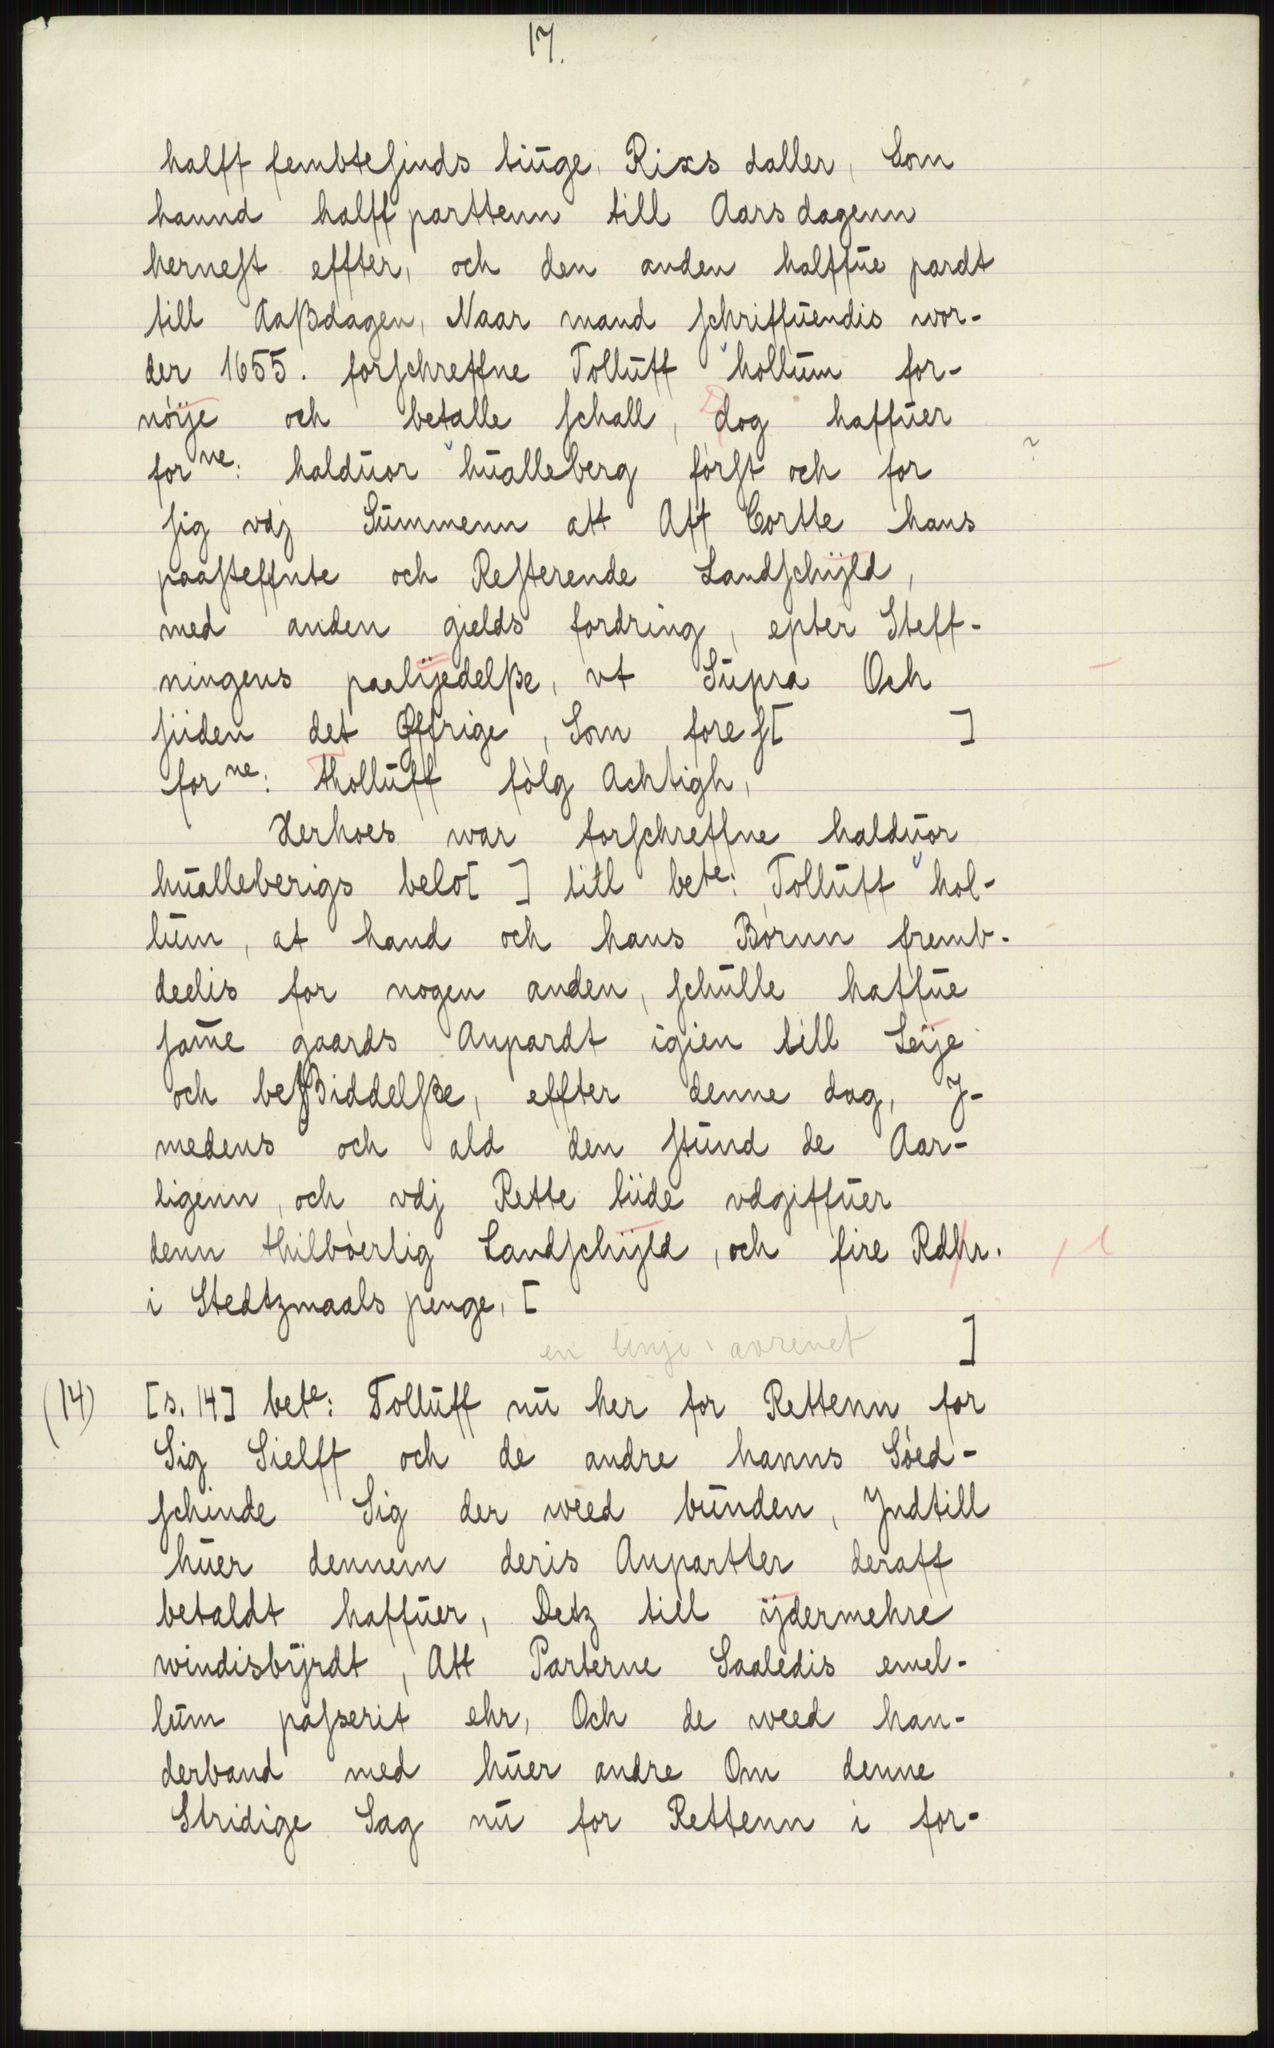 17.
halff fembtesinds tiuge, Rixs daller, Som
hannd halff parttenn till Aars dagenn
hernest effter, och den anden halffue pardt
till Aaßdagen, Naar mand schriffuendis wor-
der 1655. forschreffne Tolluff hollum for-
nøÿe och betalle schall, dog haffuer
for ne: halduor hualleberg først och for ?
sig vdj Summenn att Aff Cortte hans
paasteffnte och Resterende Landschÿld,
med anden gields fordring, epter Steff-
ningens paalÿedelße, vt Supra Och
siiden det Øffrige, Som forest[ ]
for ne: tholluff følg Achtigh,
Herhoes war forschreffne halduor
hualleberigs belo[ ] till bete: Tolluff hol-
lum, at hand och hans Børnn fremb-
deelis for nogen anden, schulle haffue
same gaards Anpardt igien till Leÿe
och beßiddelße, effter denne dag, J-
medens och ald den stund de Aar-
ligenn, och vdj Rette tiide vdgiffuer
denn thilbøerlig Landschÿld, och fire Rdhr.
i Stedtzmaals penge, [
en linje avrevet ]
(14) [s. 14] bete: Tolluff nu her for Rettenn for
Sig Sielff och de andre hanns Søed-
schinde Sig der weed bunden, Jndtill
huer dennem deris Anpartter deraff
betaldt haffuer, Detz till ÿdermehre
windisbÿrdt, Att Parterne Saaledis emel-
lum passerit ehr, Och de weed han-
derband med huer andre Om denne
Stridige Sag nu for Rettenn i for-